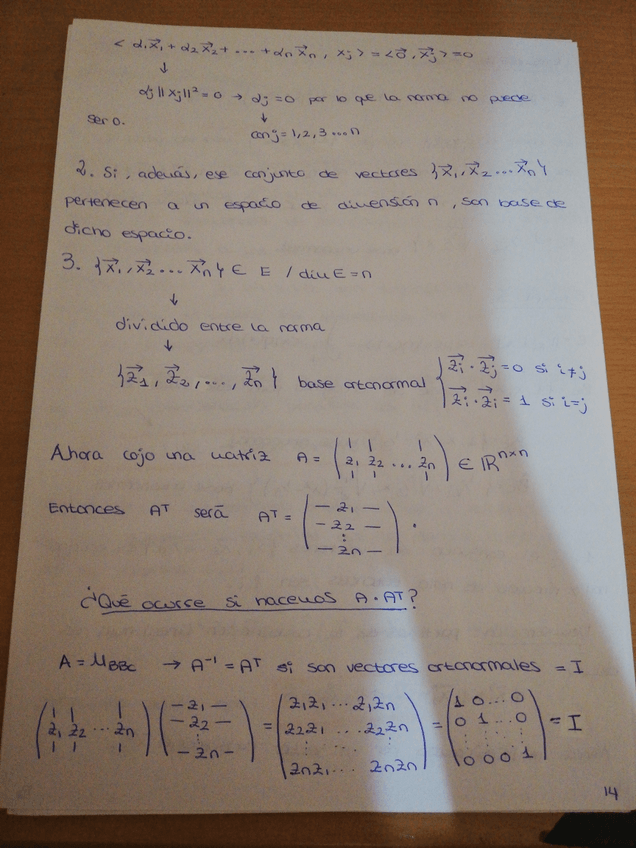 < α₁x⃗₁ + α₂x⃗₂ + ... + αₙx⃗ₙ , xⱼ > = <0⃗, x⃗ⱼ> = 0
↓
αⱼ ||xⱼ||² = 0 → αⱼ = 0 por lo que la norma no puede
ser 0.
↓
con j = 1,2,3 ... n
2. Si, además, ese conjunto de vectores {x⃗₁, x⃗₂ ... x⃗ₙ}
pertenecen a un espacio de dimensión n, son base de
dicho espacio.
3. {x⃗₁, x⃗₂ ... x⃗ₙ} ∈ E / dim E = n
↓
dividido entre la norma
↓
{z⃗₁, z⃗₂, ..., z⃗ₙ} base ortonormal { z⃗ᵢ · z⃗ⱼ = 0 si i≠j
z⃗ᵢ · z⃗ᵢ = 1 si i=j
Ahora cojo una matriz A = ( | | | ; z₁ z₂ ... zₙ ; | | | ) ∈ ℝⁿˣⁿ
Entonces Aᵀ será Aᵀ = ( — z₁ — ; — z₂ — ; ⋮ ; — zₙ — ) .
¿Qué ocurre si hacemos A · Aᵀ?
A = M_BBc → A⁻¹ = Aᵀ si son vectores ortonormales = I
( | | | ; z₁ z₂ ... zₙ ; | | | ) ( — z₁ — ; — z₂ — ; ⋮ ; — zₙ — ) = ( z₁z₁ ... z₁zₙ ; z₂z₁ ... z₂zₙ ; ⋮ ; zₙz₁ ... zₙzₙ ) = ( 1 0 ... 0 ; 0 1 ... 0 ; ⋮ ; 0 0 0 1 ) = I
14